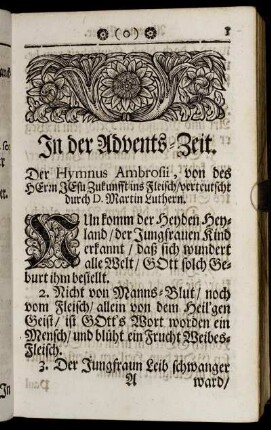 ( o ) 1
In der Advents-Zeit.
Der Hymnus Ambrosii, von des
HErrn JEsu Zukunfft ins Fleisch/verteutscht
durch D. Martin Luthern.
NUn komm der Heyden Hey-
land/der Jungfrauen Kind
erkannt / daß sich wundert
alle Welt/ GOtt solch Ge-
burt ihm bestellt.
2. Nicht von Manns-Blut/ noch
vom Fleisch/ allein von dem Heil'gen
Geist/ ist GOtt's Wort worden ein
Mensch/ und blüht ein Frucht Weibes-
Fleisch.
3. Der Jungfraun Leib schwanger
A ward/